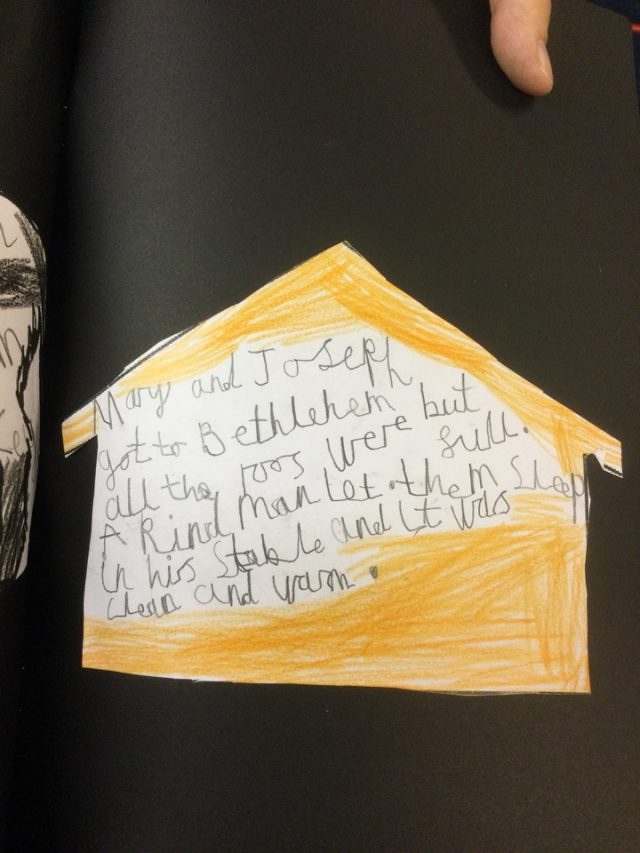 Mary and Joseph
got to Bethlehem
all the roos were but
full.
A kind man let them sleep
in his stable and it was
clean and warm.